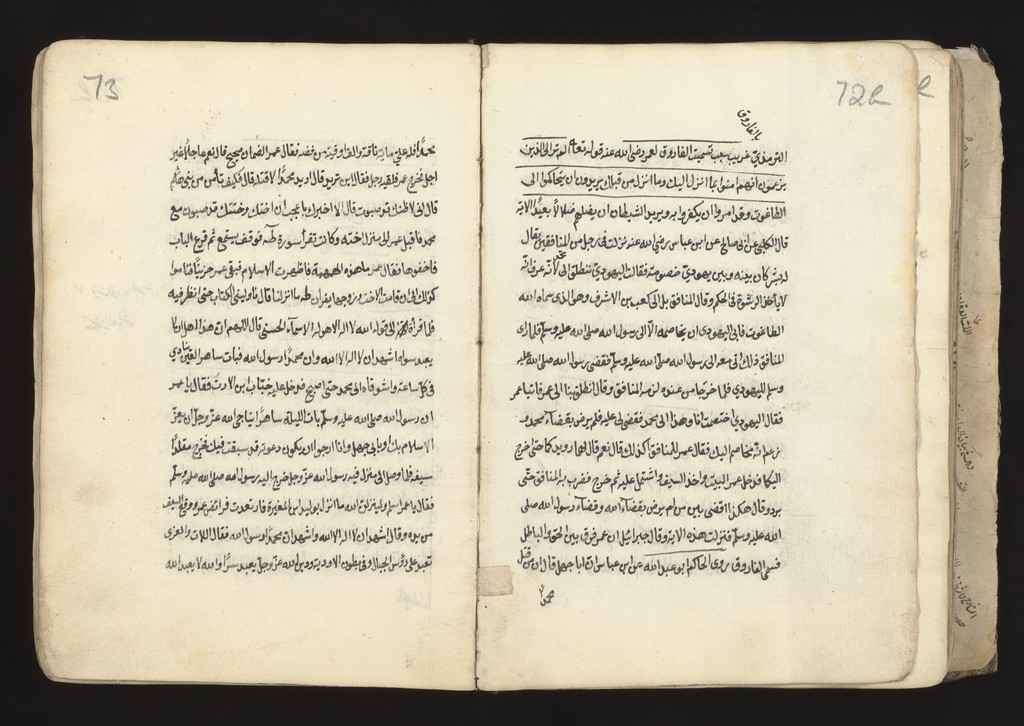 72b
بالفاروق
الترمذي غريب سبب تسميت الفاروق لعمر رضي الله عنه قوله تعالى الم تر الى الذين
يزعمون انهم امنوا بما انزل اليك وما انزل من قبلك يريدون ان يتحاكموا الى
الطاغوت وقد امروا ان يكفروا به ويريد الشيطان ان يضلهم ضلالا بعيدا الاية
قال الكلبي عن ابي صالح عن ابن عباس رضي الله عنه نزلت في رجل من المنافقين يقال
له بشر كان بينه وبين يهودي خصومة فقال اليهودي ننطلق الى محمد لانه عرف انه
لا ياخذ الرشوة في الحكم وقال المنافق بل الى كعب بن الاشرف وهو الذي سماه الله
الطاغوت فابى اليهودي ان يخاصمه الا الى رسول الله صلى الله عليه وسلم فلما راى
المنافق ذلك اتى معه الى رسول الله صلى الله عليه وسلم فقضى رسول الله صلى الله عليه
وسلم لليهودي فلما خرجا من عنده لزمه المنافق وقال انطلق بنا الى عمر فاتيا عمر
فقال اليهودي اختصمت انا وهذا الى محمد فقضى لي عليه فلم يرض بقضاء محمد و
زعم انه يخاصم اليك فقال عمر للمنافق اكذلك قال نعم قال لهما رويدكما حتى اخرج
اليكما فدخل عمر البيت واخذ السيف واشتمل عليه ثم خرج فضرب به المنافق حتى
برد وقال هكذا اقضي بين من لم يرض بقضاء الله وقضاء رسول الله صلى
الله عليه وسلم فنزلت هذه الاية وقال جبرائيل ان عمر فرق بين الحق والباطل
فسمي الفاروق روى الحاكم ابو عبد الله عن ابن عباس ان ابا جهل قال ان من قتل
محمدا
73
محمدا فله علي ماية ناقة والف اوقية من فضة فقال عمر الضمان صحيح قال نعم عاجلا غير
اجل فخرج عمر فلقيه رجل فقال اين تريد قال اريد محمدا لاقتله قال فكيف تأمن من بني هاشم
قال اني لاظنك قد صبوت قال الا اخبرك باعجب ان اختك وختنك قد صبوا مع
محمد فاقبل عمر الى منزل اخته وكانت تقرأ سورة طه فوقف يستمع ثم قرع الباب
فاخفوها فقال عمر ما هذه الهيمنة فاظهرت الاسلام فبقي عمر حزينا فناموا
كذلك الى ان قامت الاخت وزوجها يقران طه ما انزلنا قال ناوليني الكتاب حتى انظر فيه
فلما قرأه الى قوله الله لا اله الا هو له الاسماء الحسنى قال اللهم ان هذا اهل ان لا
يعبد سواه اشهد ان لا اله الا الله وان محمدا رسول الله فبات ساهر العين ينادي
في كل ساعة واشوقاه الى محمد حتى اصبح فدخل عليه خباب ابن الارت فقال يا عمر
ان رسول الله صلى الله عليه وسلم بات الليلة ساهرا يناجي الله عز وجل ان يعز
الاسلام بك او بابي جهل وانا ارجو ان يكون دعوته قد سبقت فيك فخرج مقلدا
سيفه فلما وصل الى منزل فيه رسول الله عز وجل خرج اليه رسول الله صلى الله عليه وسلم
فقال يا عمر اسلم او لينزلن الله ما انزل بوليد ابن المغيرة فارتعدت فرائص عمر ووقع السيف
من يده وقال اشهد ان لا اله الا الله واشهد ان محمدا رسول الله فقال اللات والعزى
تعبد على رؤس الجبال وفي بطون الاودية ودين الله عز وجل يعبد سرا والله لا يعبد الله